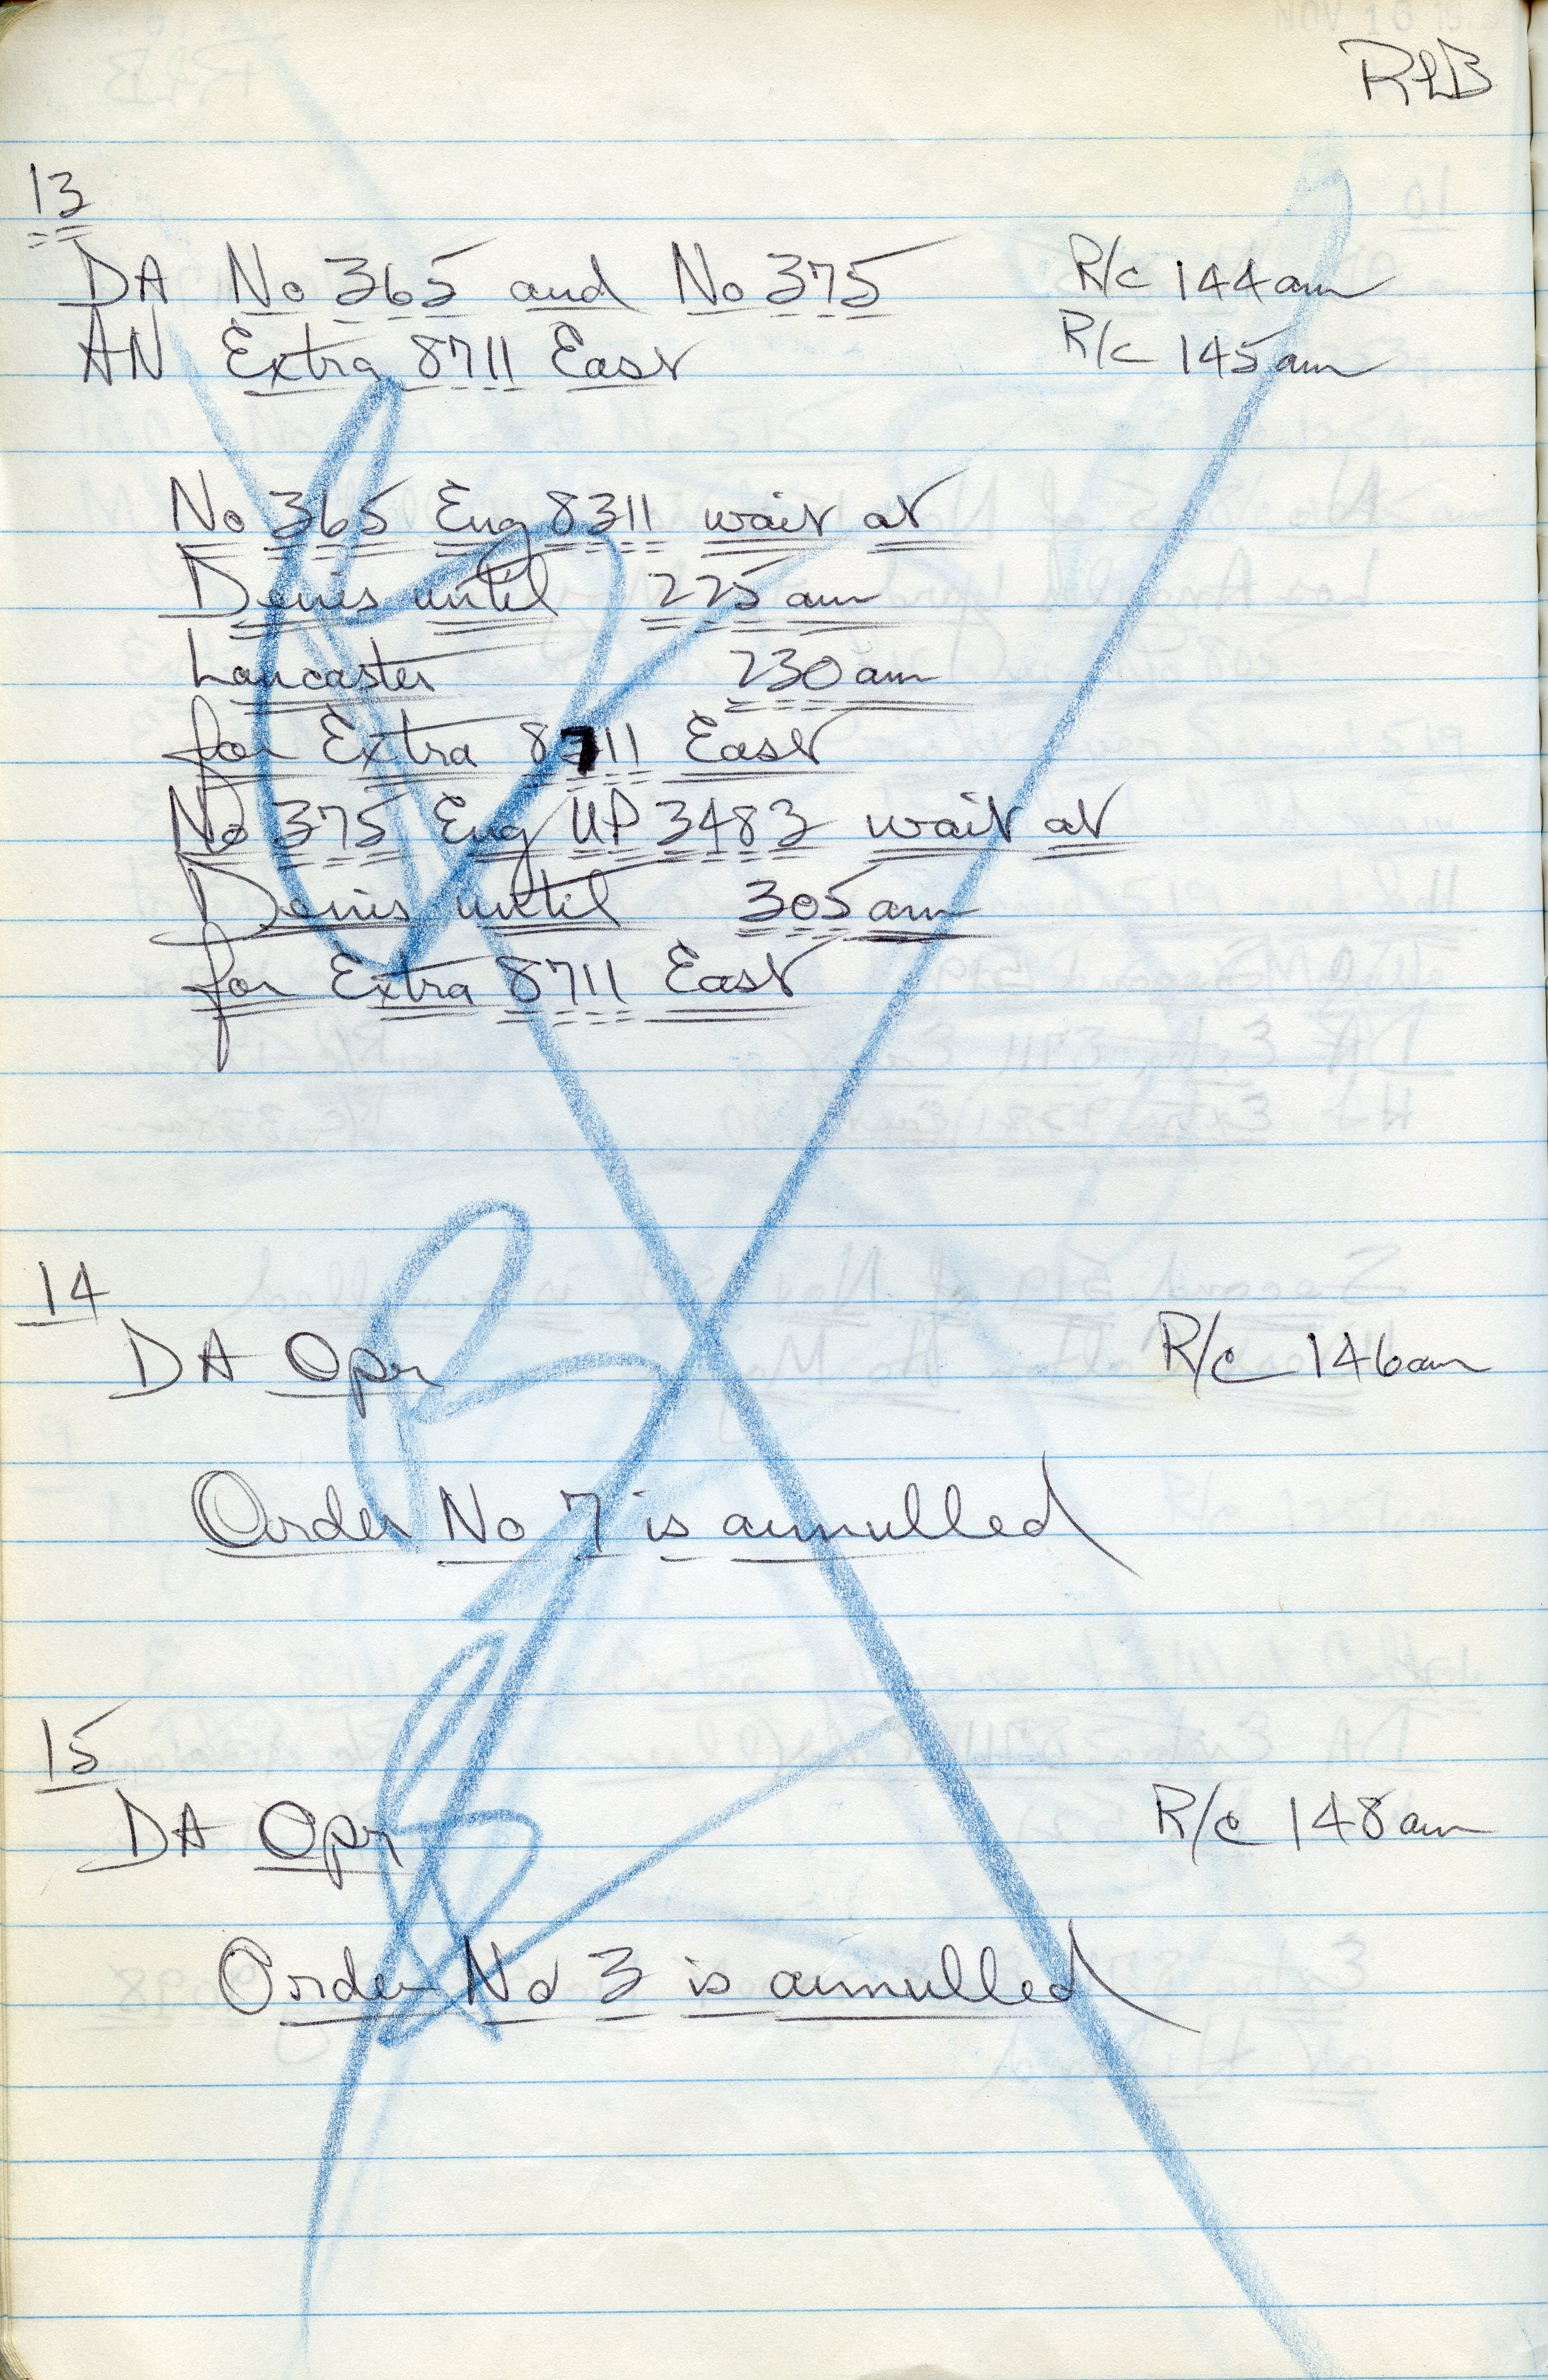 NOV 16
RLB
13
DA No 365 and No 375 R/c 144am
AN Extra 8711 East R/c 145am
No 365 Eng 8311 wait at
Denis until 225 am
Lancaster 230 am
for Extra 8711 East
No 375 Eng UP 3483 wait at
Denis until 305 am
for Extra 8711 East
14
DA Opr R/c 146am
Order No 7 is annulled
15
DA Opr R/c 148am
Order No 3 is annulled